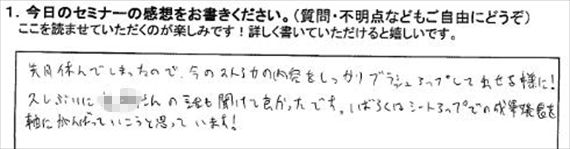 1. 今日のセミナーの感想をお書きください。(質問・不明点などもご自由にどうぞ)
ここを読ませていただくのが楽しみです！詳しく書いていただけると嬉しいです。
先月休んでしまったので、今の入力の内容をしっかりブラッシュアップして出せる様に！
久しぶりに さんの話も聞けて良かったです。しばらくはシートアップでの成果発表を
軸にがんばっていこうと思っています！